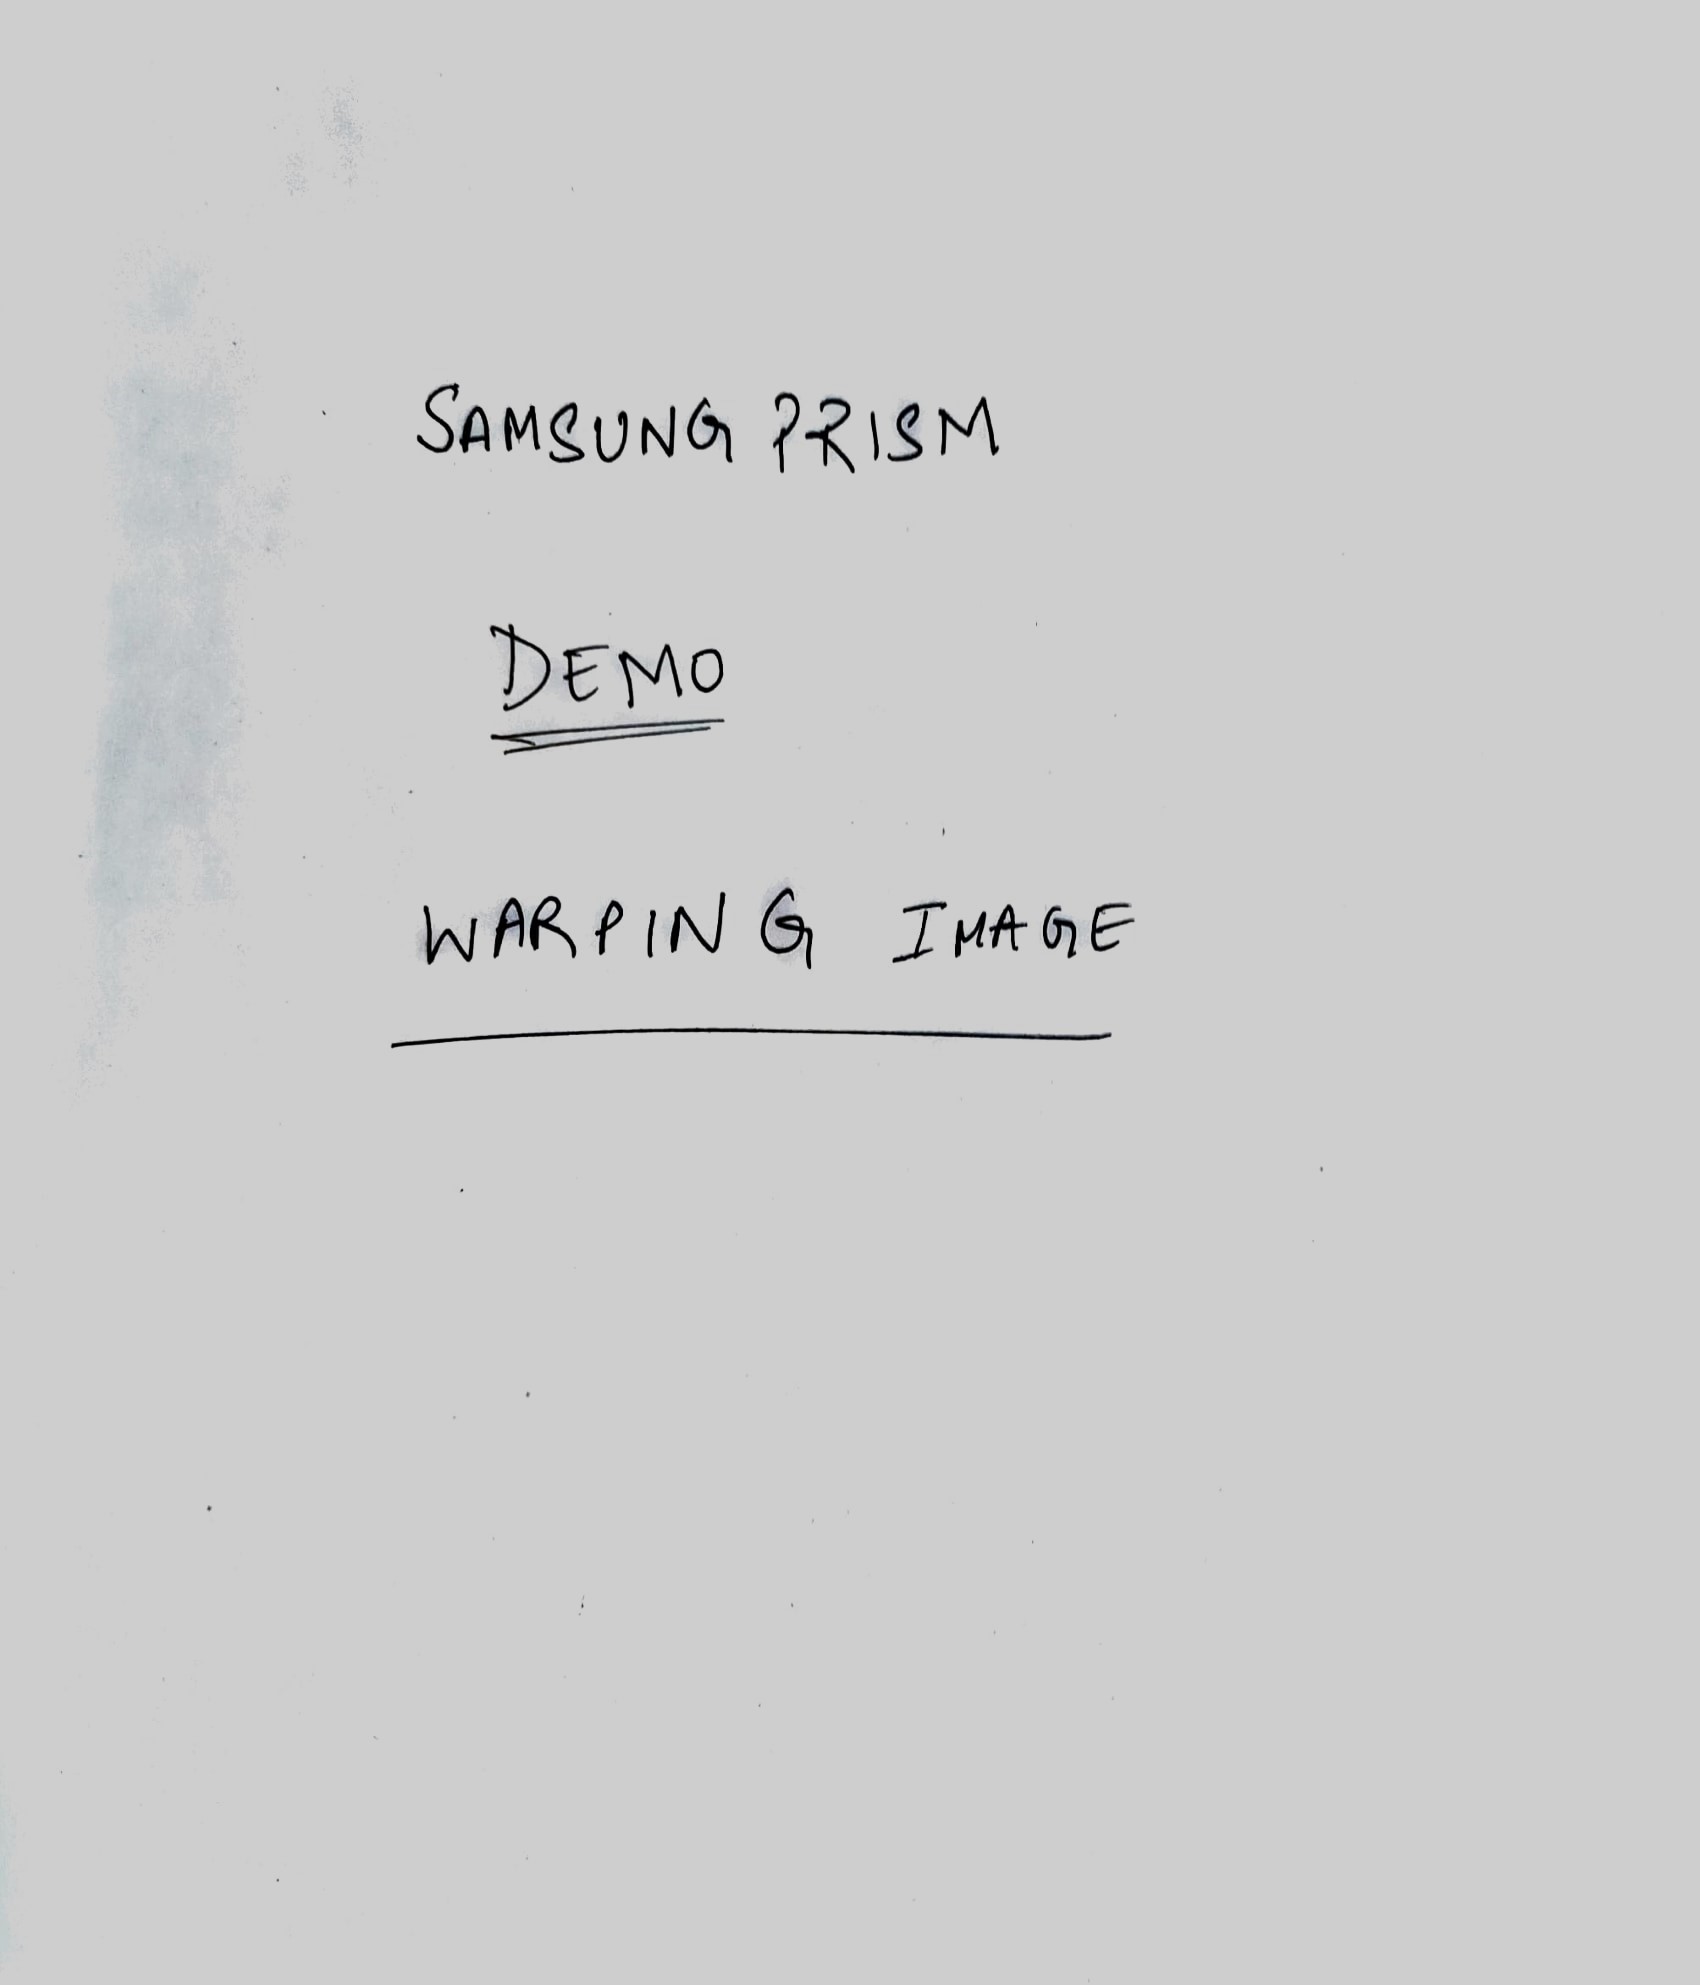 SAMSUNG PRISM
DEMO
WARPING IMAGE